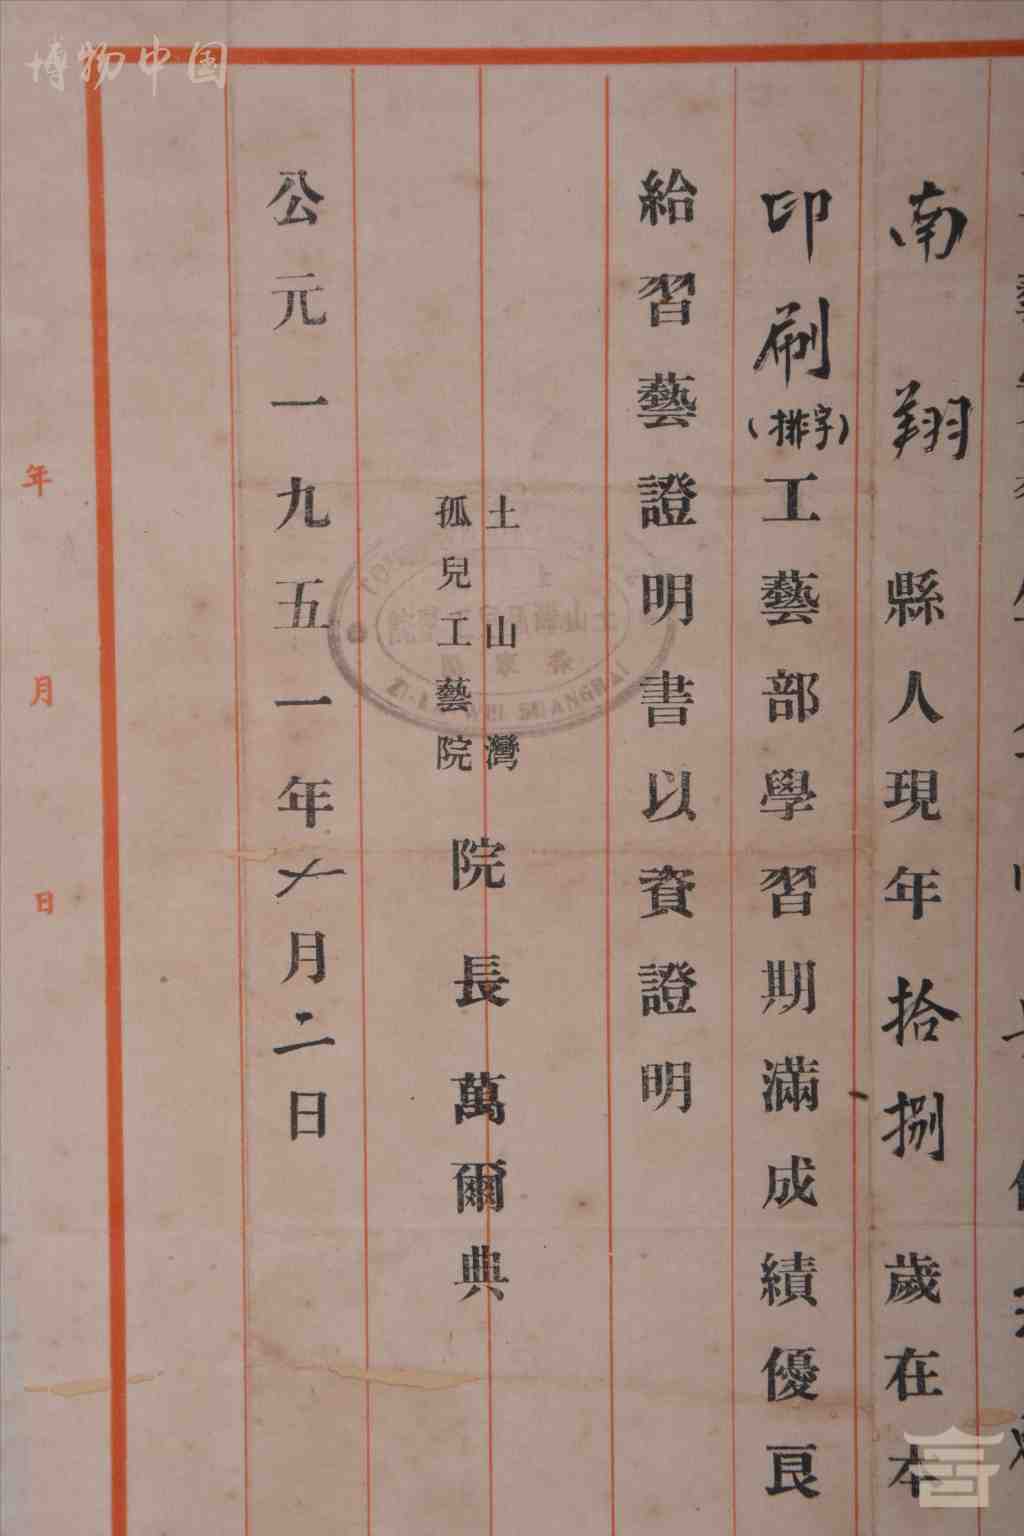 南翔縣人現年拾捌歲在本
印刷(排字)工藝部學習期滿成績優良
給習藝證明書以資證明
土山灣
孤兒工藝院
院長萬爾典
公元一九五一年十月二日
年月日
博物中国
ZI-KA-WEI SHANGHAI